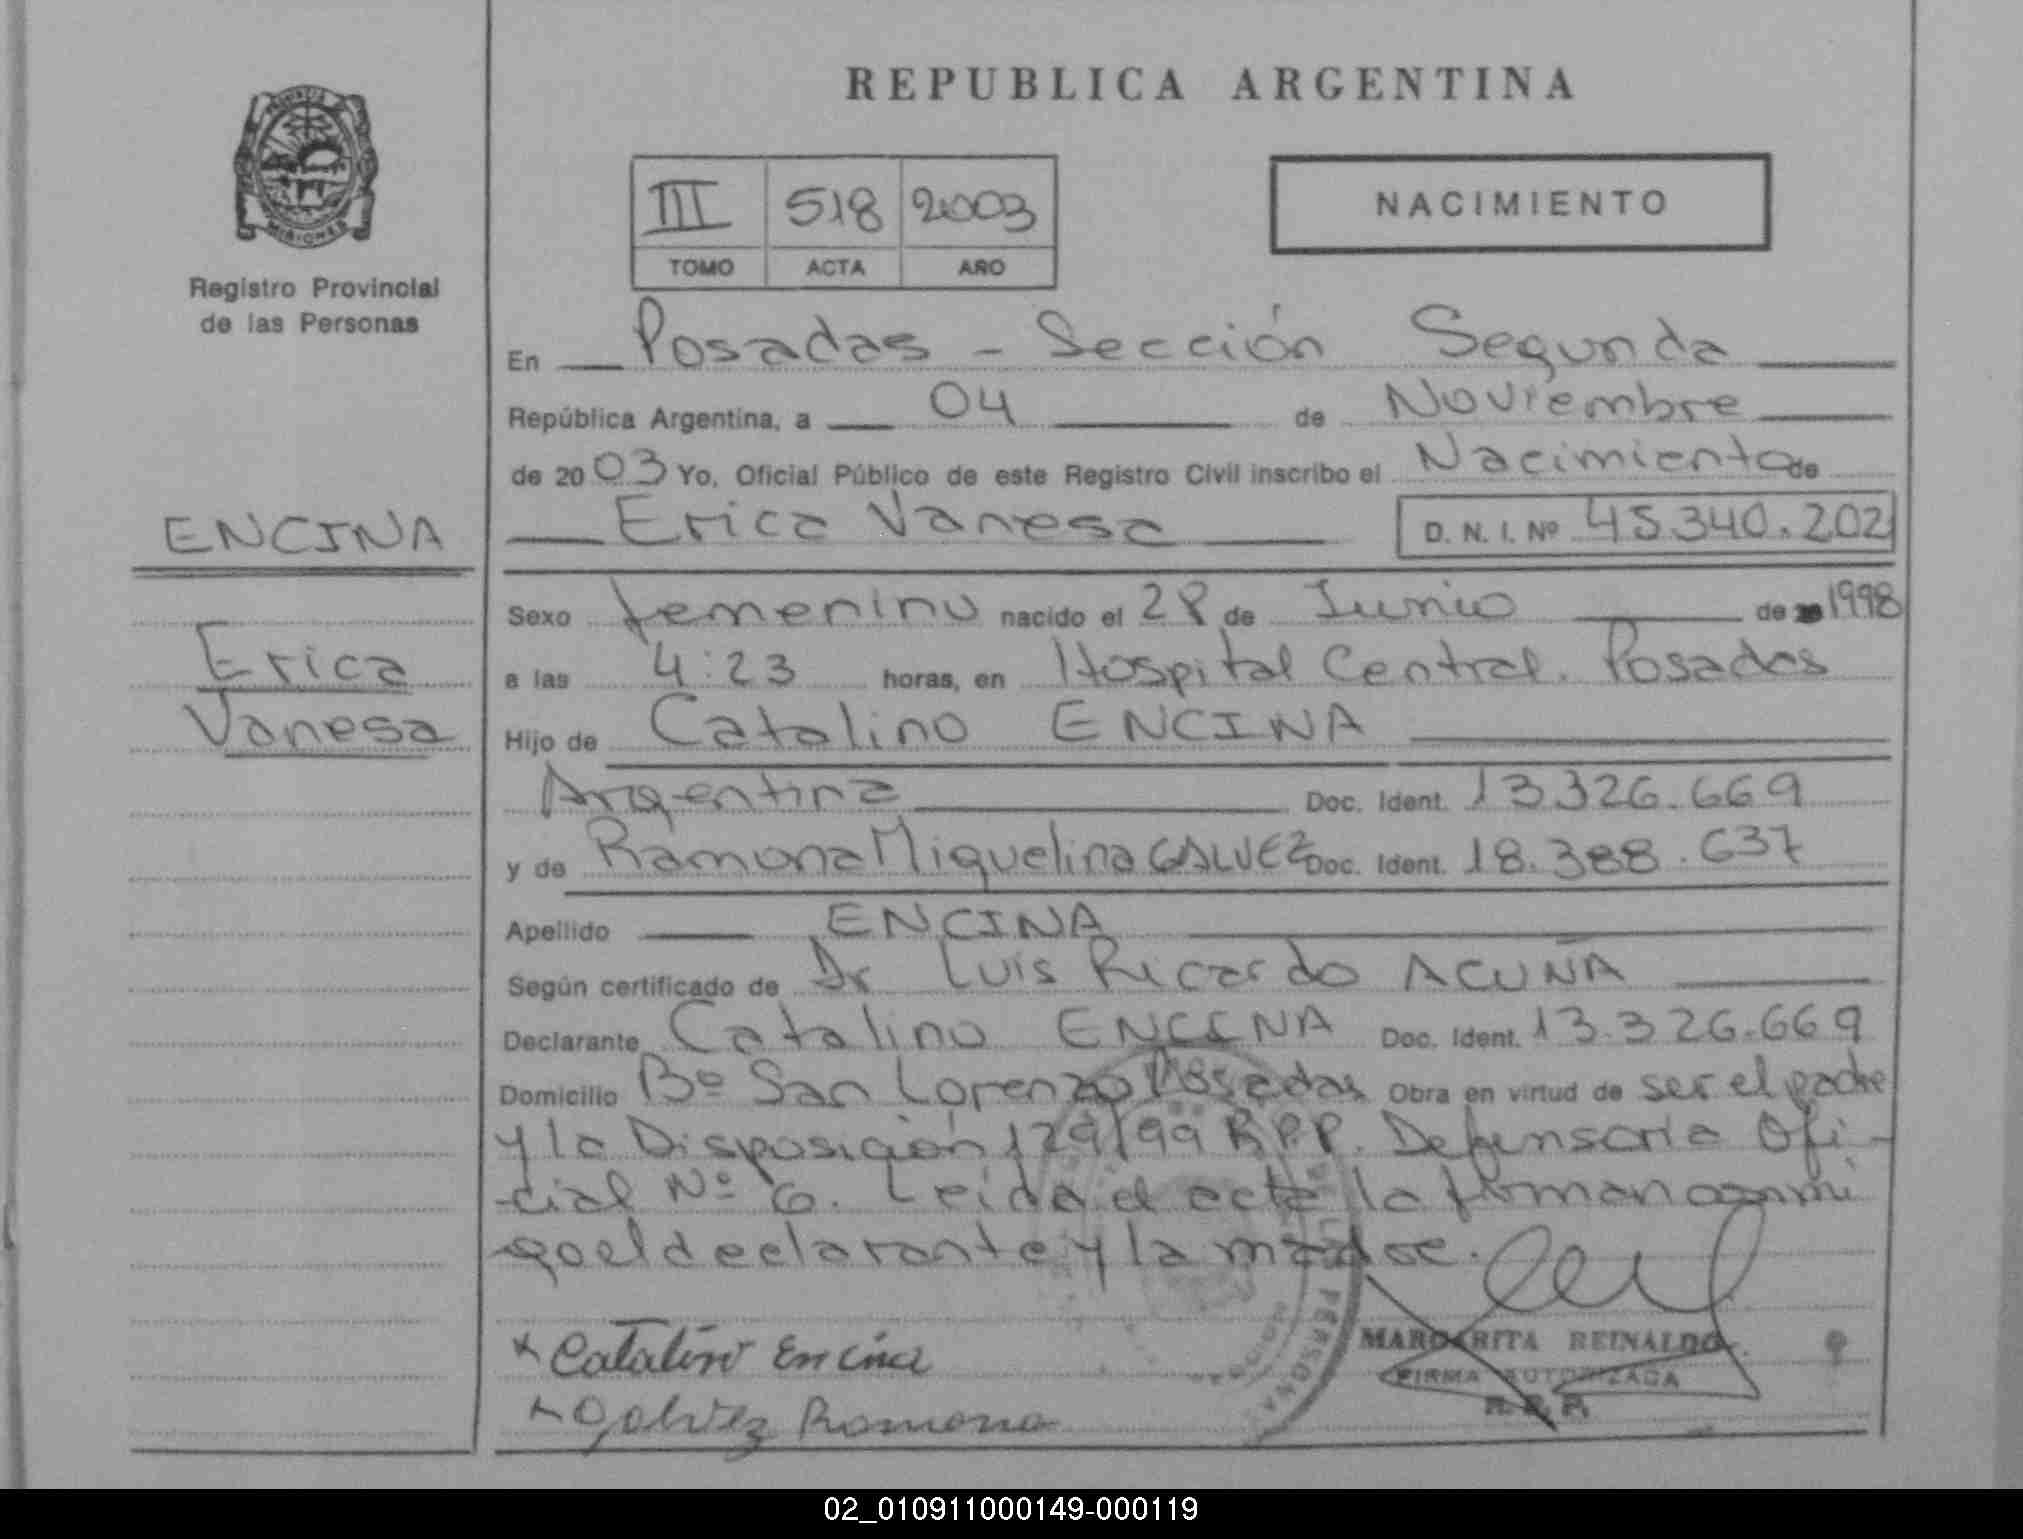 REPUBLICA ARGENTINA
PROVINCIA
MISIONES
Registro Provincial
de las Personas
III 518 2003
TOMO ACTA AÑO
NACIMIENTO
En Posadas - Sección Segunda
República Argentina, a 04 de Noviembre
de 2003 Yo, Oficial Público de este Registro Civil inscribo el Nacimiento de
Erica Vanesa D. N. I. Nº 45.340.202
ENCINA
Erica
Vanesa
Sexo femenino nacido el 28 de Junio de 1998
a las 4:23 horas, en Hospital Central. Posadas
Hijo de Catalino ENCINA
Argentina Doc. Ident. 13.326.669
y de Ramona Miguelina GALVEZ Doc. Ident. 18.388.637
Apellido ENCINA
Según certificado de Dr Luis Ricardo ACUÑA
Declarante Catalino ENCINA Doc. Ident. 13.326.669
Domicilio Bº San Lorenzo Posadas Obra en virtud de ser el padre
y la Disposición 129/99 RPP. Defensoria Ofi-
cial Nº 6. Leida el acta la firman conmi
go el declarante y la madre.
x Catalino Encina
x Galvez Ramona
MARGARITA REINALDO
FIRMA AUTORIZADA
R. P. P.
02_010911000149-000119